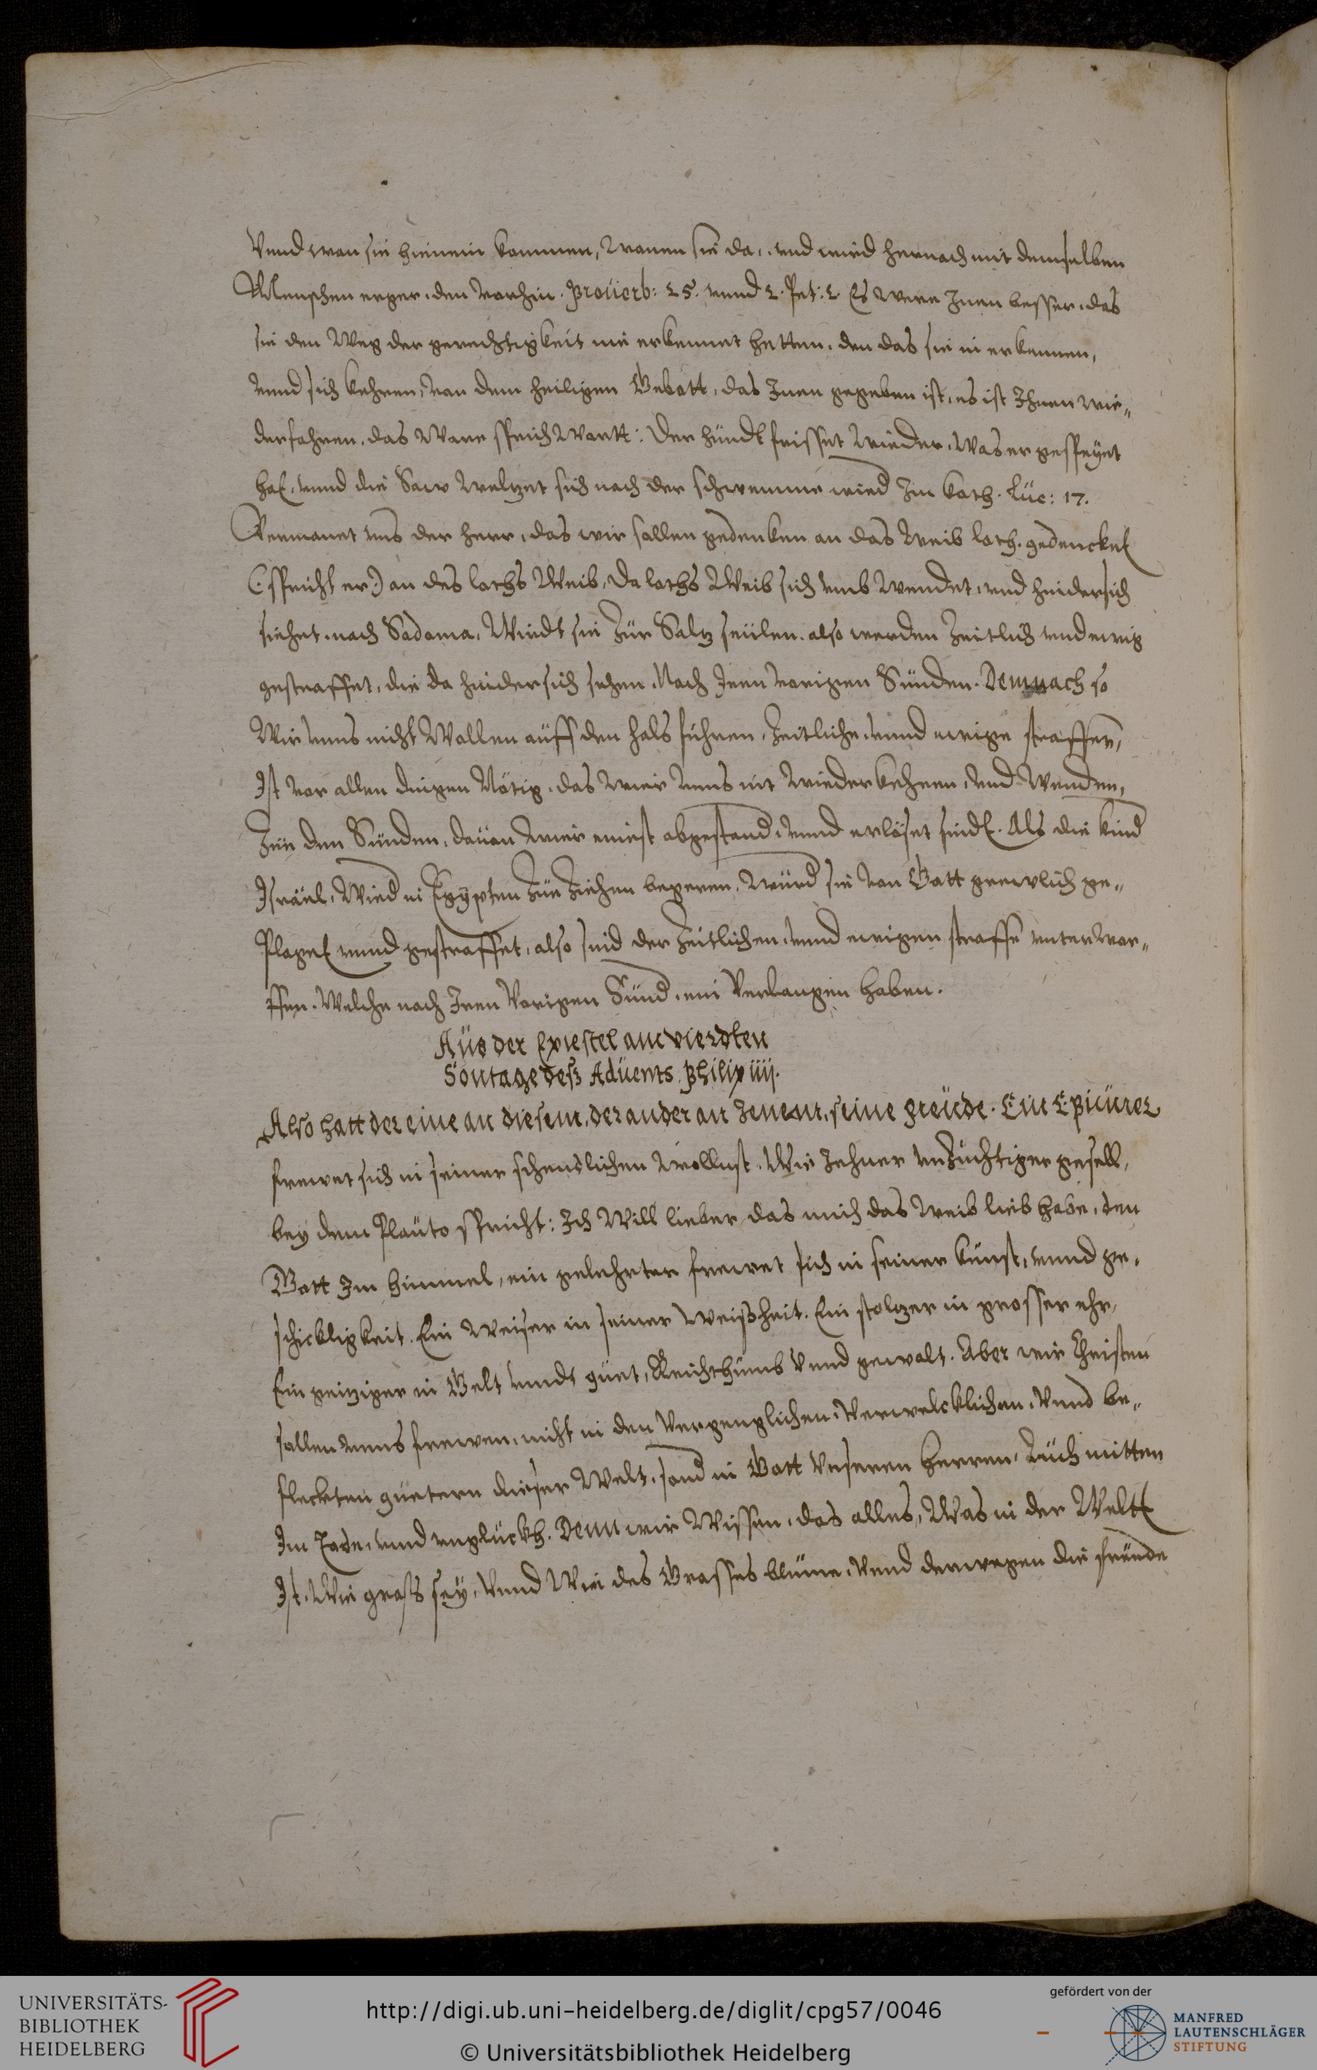 Vnnd wan sie hienein kommen, wonen sie da, vnd wird hernach mit demselben
Menschen erger, den vorhin. Prouerb: 25. vnnd 2. Pet: 2. Es were Inen besser, das
sie den Weg der gerechtigkeit nie erkennet hetten, den das sie in erkennen,
vnnd sich kehren, von dem heiligen Gebott, das Inen gegeben ist, es ist Ihnen wie„
derfahren, das Ware sprichWortt: Der hündt frisset Wieder, Was er gespeyet
hat, vnnd die Saw Weltzet sich nach der schwemme wied Im koth. Lüc: 17.
Vermanet vns der herr, das wir sollen gedenken an das Weib loth. gedencket
(: spricht er:) an des loths Weib, Da loths Weib sich vmb wendet, vnd hindersich
siehet, nach Sodoma, Wirdt sie Zür Saltz seülen. also werden Zeitlich vnd ewig
gestraffet, die da hindersich sehen, Nach Iren vorigen Sünden. Demnach so
Wir vnns nicht Wollen auff den hals führen, Zeitliche, vnnd ewige straffen,
Ist vor allen dingen Nötig, das wir vnns nit Wieder kehren, vnd Wenden,
Zür den Sünden, dauon wir einest abgestand, vnnd erlöset sindt. Als die kind
Israel, Wied in Egypten Zür Ziehen begeren, Würd sie von Gott grewlich ge„
Plaget vnnd gestraffet, also sind der Zeitlichen, vnnd ewigen straffe vnterwor„
ffen. Welche nach Iren Vorigen Sünd, ein Verlangen haben.
Aüs der Epiestel am vierdten
Sontage deß Aduents. Philip iiij.
Also hatt der eine an diesem, der ander an Jenem, seine freüde. Ein Epicürer
frewet sich in seiner schenslichen Wollust. Wie Jehner vnZüchtiger gesell,
bey dem Plauto spricht: Ich Will lieber das mich das Weib lieb habe, den
Gott Im himmel, ein gelehrter frewet sich in seiner kunst, vnnd ge„
schickligkeit. Ein Weiser in seiner Weißheit. Ein stoltzer in grosser ehr,
Ein geitziger in Gelt vnndt güet, Reichthümb Vnnd gewalt. Aber wir Christen
sollen vnns frewen, nicht in den Vergenglichen, Verwelcklichen, Vnnd be„
fleckten güetern dieser Welt, sond in Gott Vnseren Herren, Auch mitten
Im Tode, vnnd vnglückh. Denn wir Wissen, das alles, Was in der Weltt
Ist, Wie graß sey, Vnnd Wie des Grasses blüme, Vnnd derwegen die freüde
UNIVERSITÄTS-
BIBLIOTHEK
HEIDELBERG
http://digi.ub.uni-heidelberg.de/diglit/cpg57/0046
© Universitätsbibliothek Heidelberg
gefördert von der
MANFRED
LAUTENSCHLÄGER
STIFTUNG